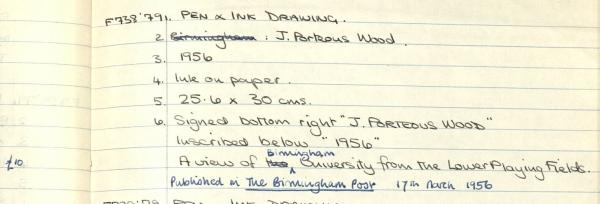 F738'79 1. PEN & INK DRAWING.
2. Birmingham : J. Porteous Wood.
3. 1956
4. Ink on paper.
5. 25.6 x 30 cms.
6. Signed bottom right "J. PORTEOUS WOOD"
Inscribed below "1956"
£10 A view of the Birmingham University from the Lower Playing Fields.
Published in The Birmingham Post 17th March 1956